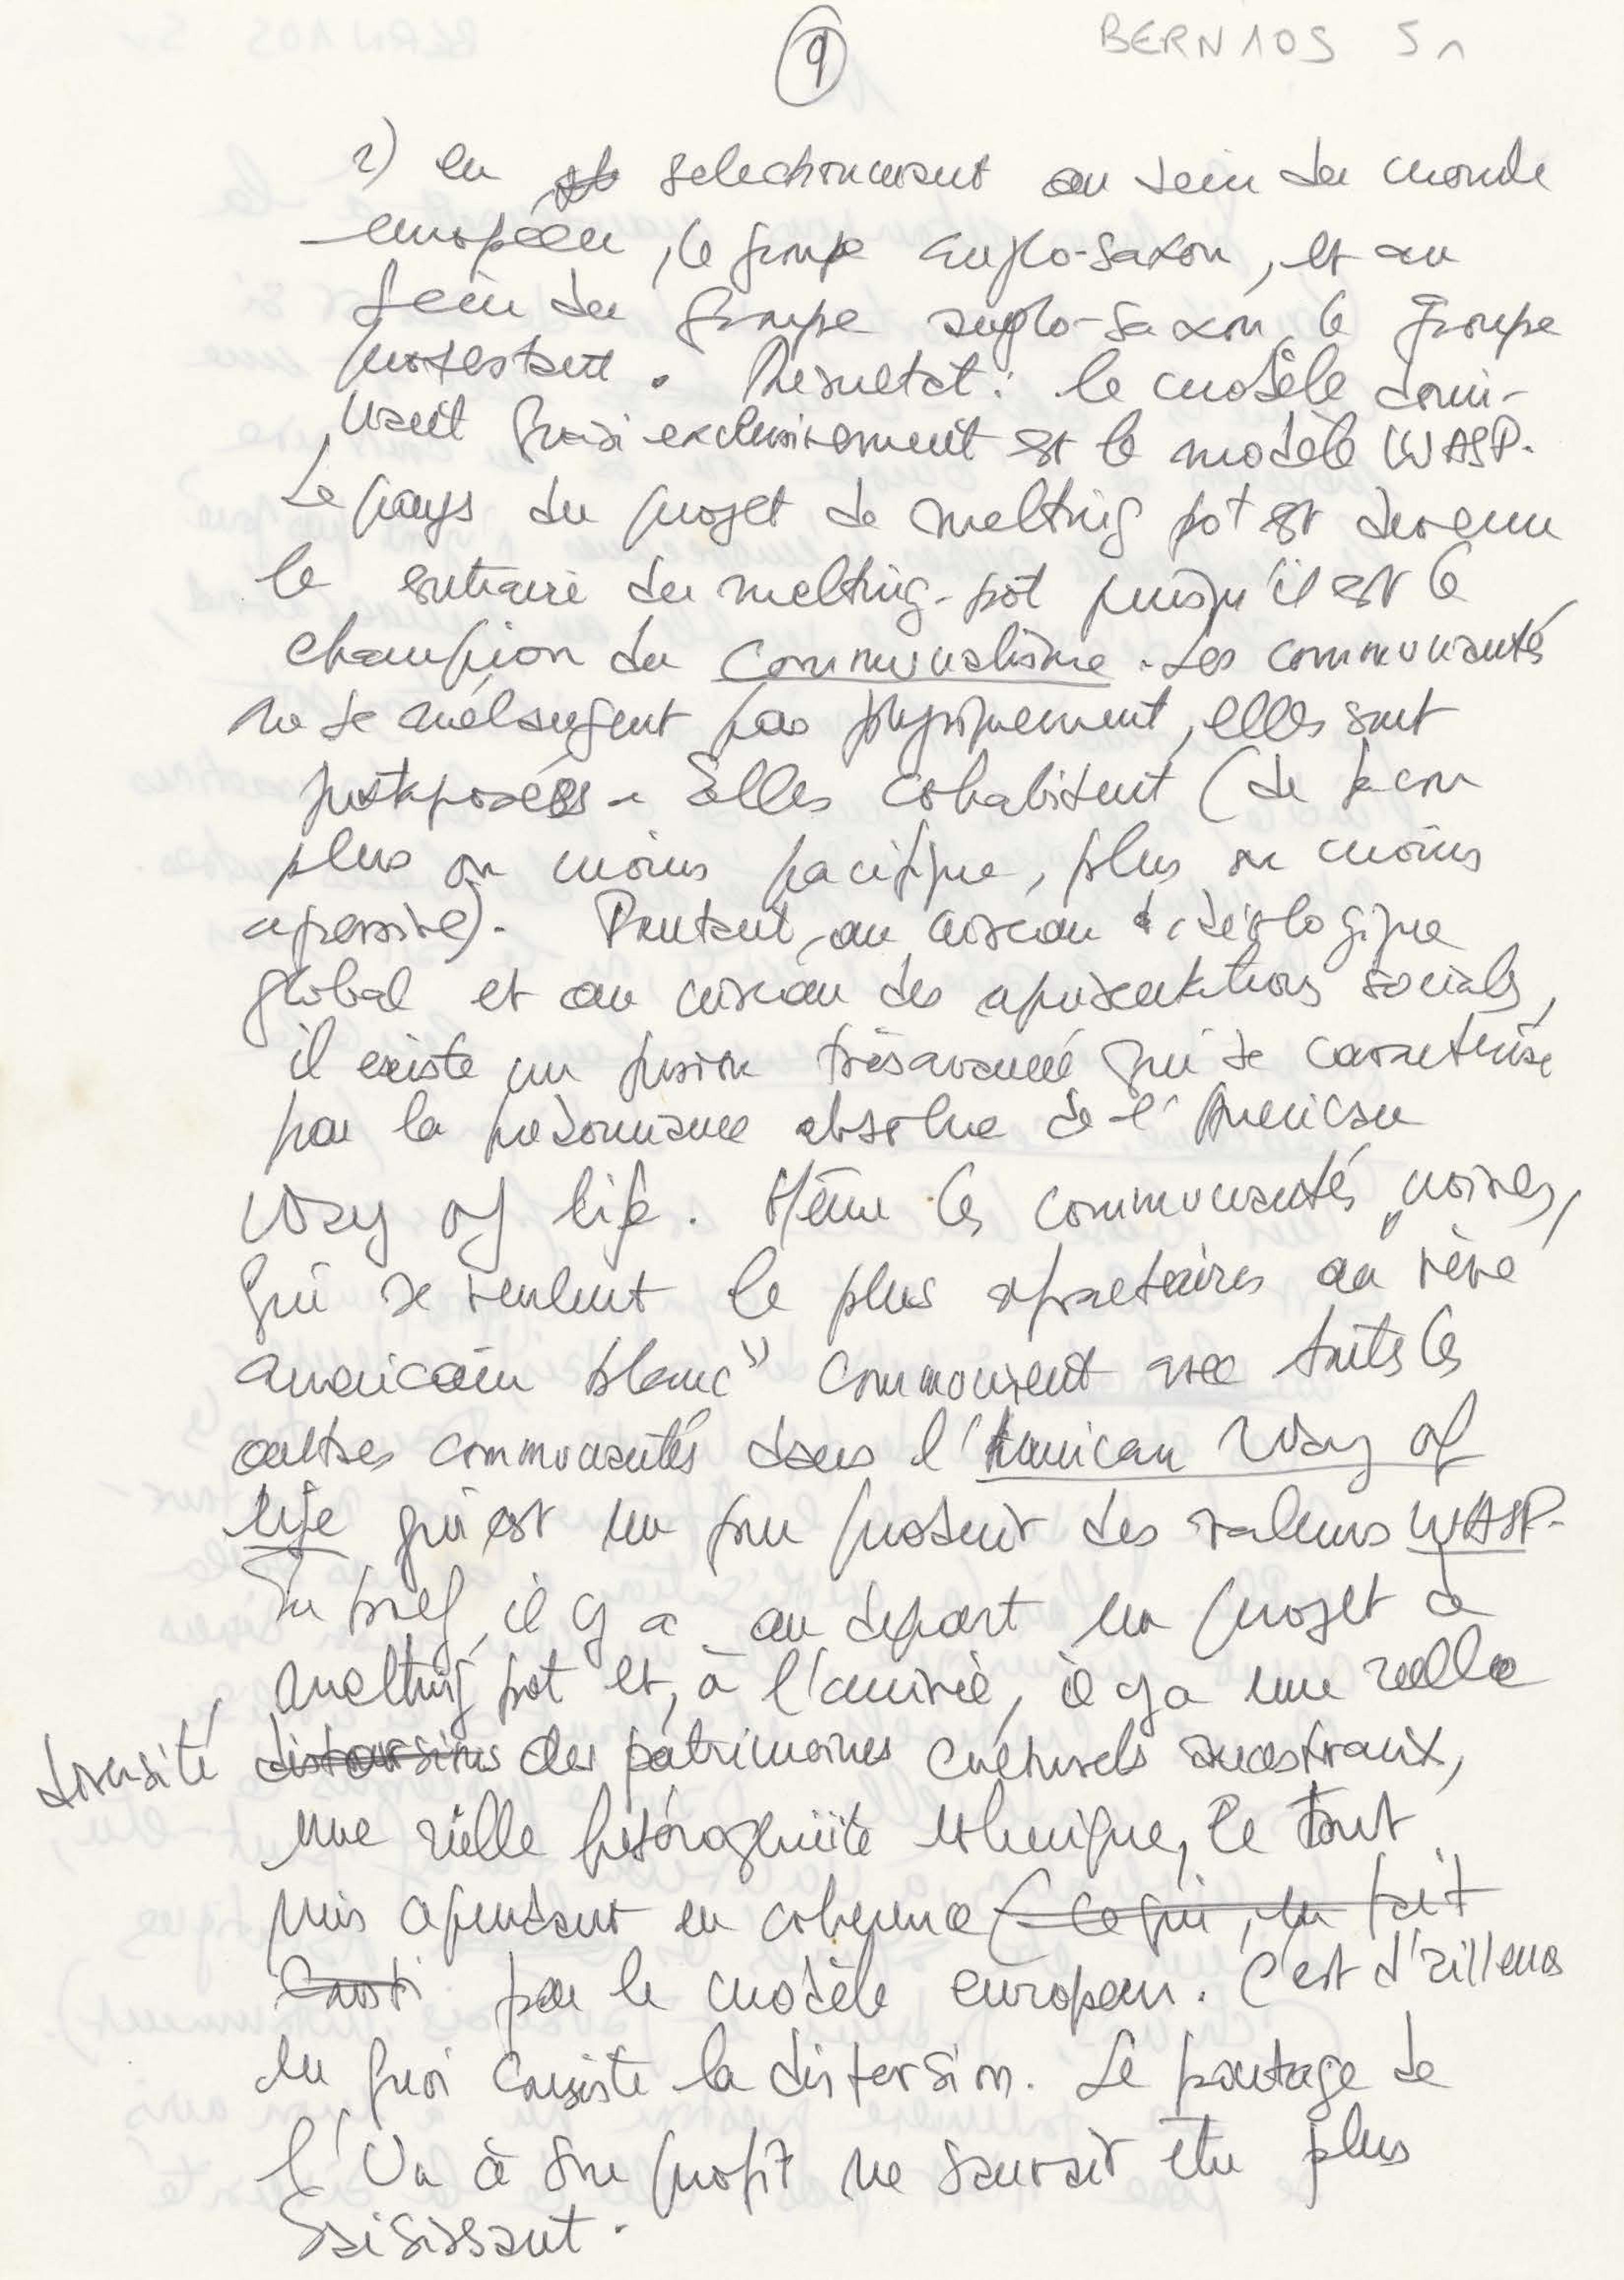 9
BERN 105 51
2) en selectionnant au sein du monde
européen, le groupe anglo-saxon, et au
sein du groupe anglo-saxon le groupe
protestant. Résultat : le modèle domi-
nant quasi exclusivement est le modèle WASP.
Le pays du projet de melting pot est devenu
le contraire du melting-pot puisqu'il est le
champion du communalisme. Les communautés
ne se mélangent pas physiquement, elles sont
juxtaposées. Elles cohabitent (de façon
plus ou moins pacifique, plus ou moins
agressive). Pourtant, au niveau idéologique
global et au niveau des représentations sociales,
il existe une fusion très avancée qui se caractérise
par la prédominance absolue de l'American
Way of life. Même les communautés noires,
qui se veulent le plus réfractaires au "rêve
américain blanc" communient avec toutes les
autres communautés dans l'American Way of
life qui est un pur produit des valeurs WASP.
En bref, il y a au départ un projet de
melting pot et, à l'arrivée, il y a une réelle
diversité distorsions des patrimoines culturels ancestraux,
une réelle hétérogénéité ethnique, le tout
mis en cohérence (ce qui, en fait
par le modèle européen. C'est d'ailleurs
en quoi consiste la distorsion. Le partage de
l'Un à son profit ne saurait être plus
saisissant.